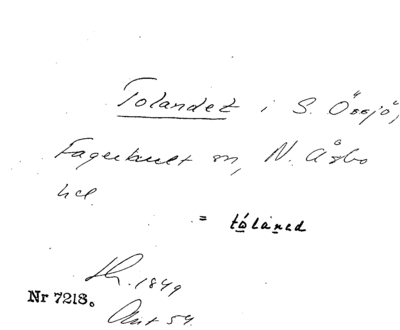 Tolandet i S. Össjö,
Fagerhult sn, N. Åsbo
hd
= tóláned
1849
Nr 7218.
Ant 54.